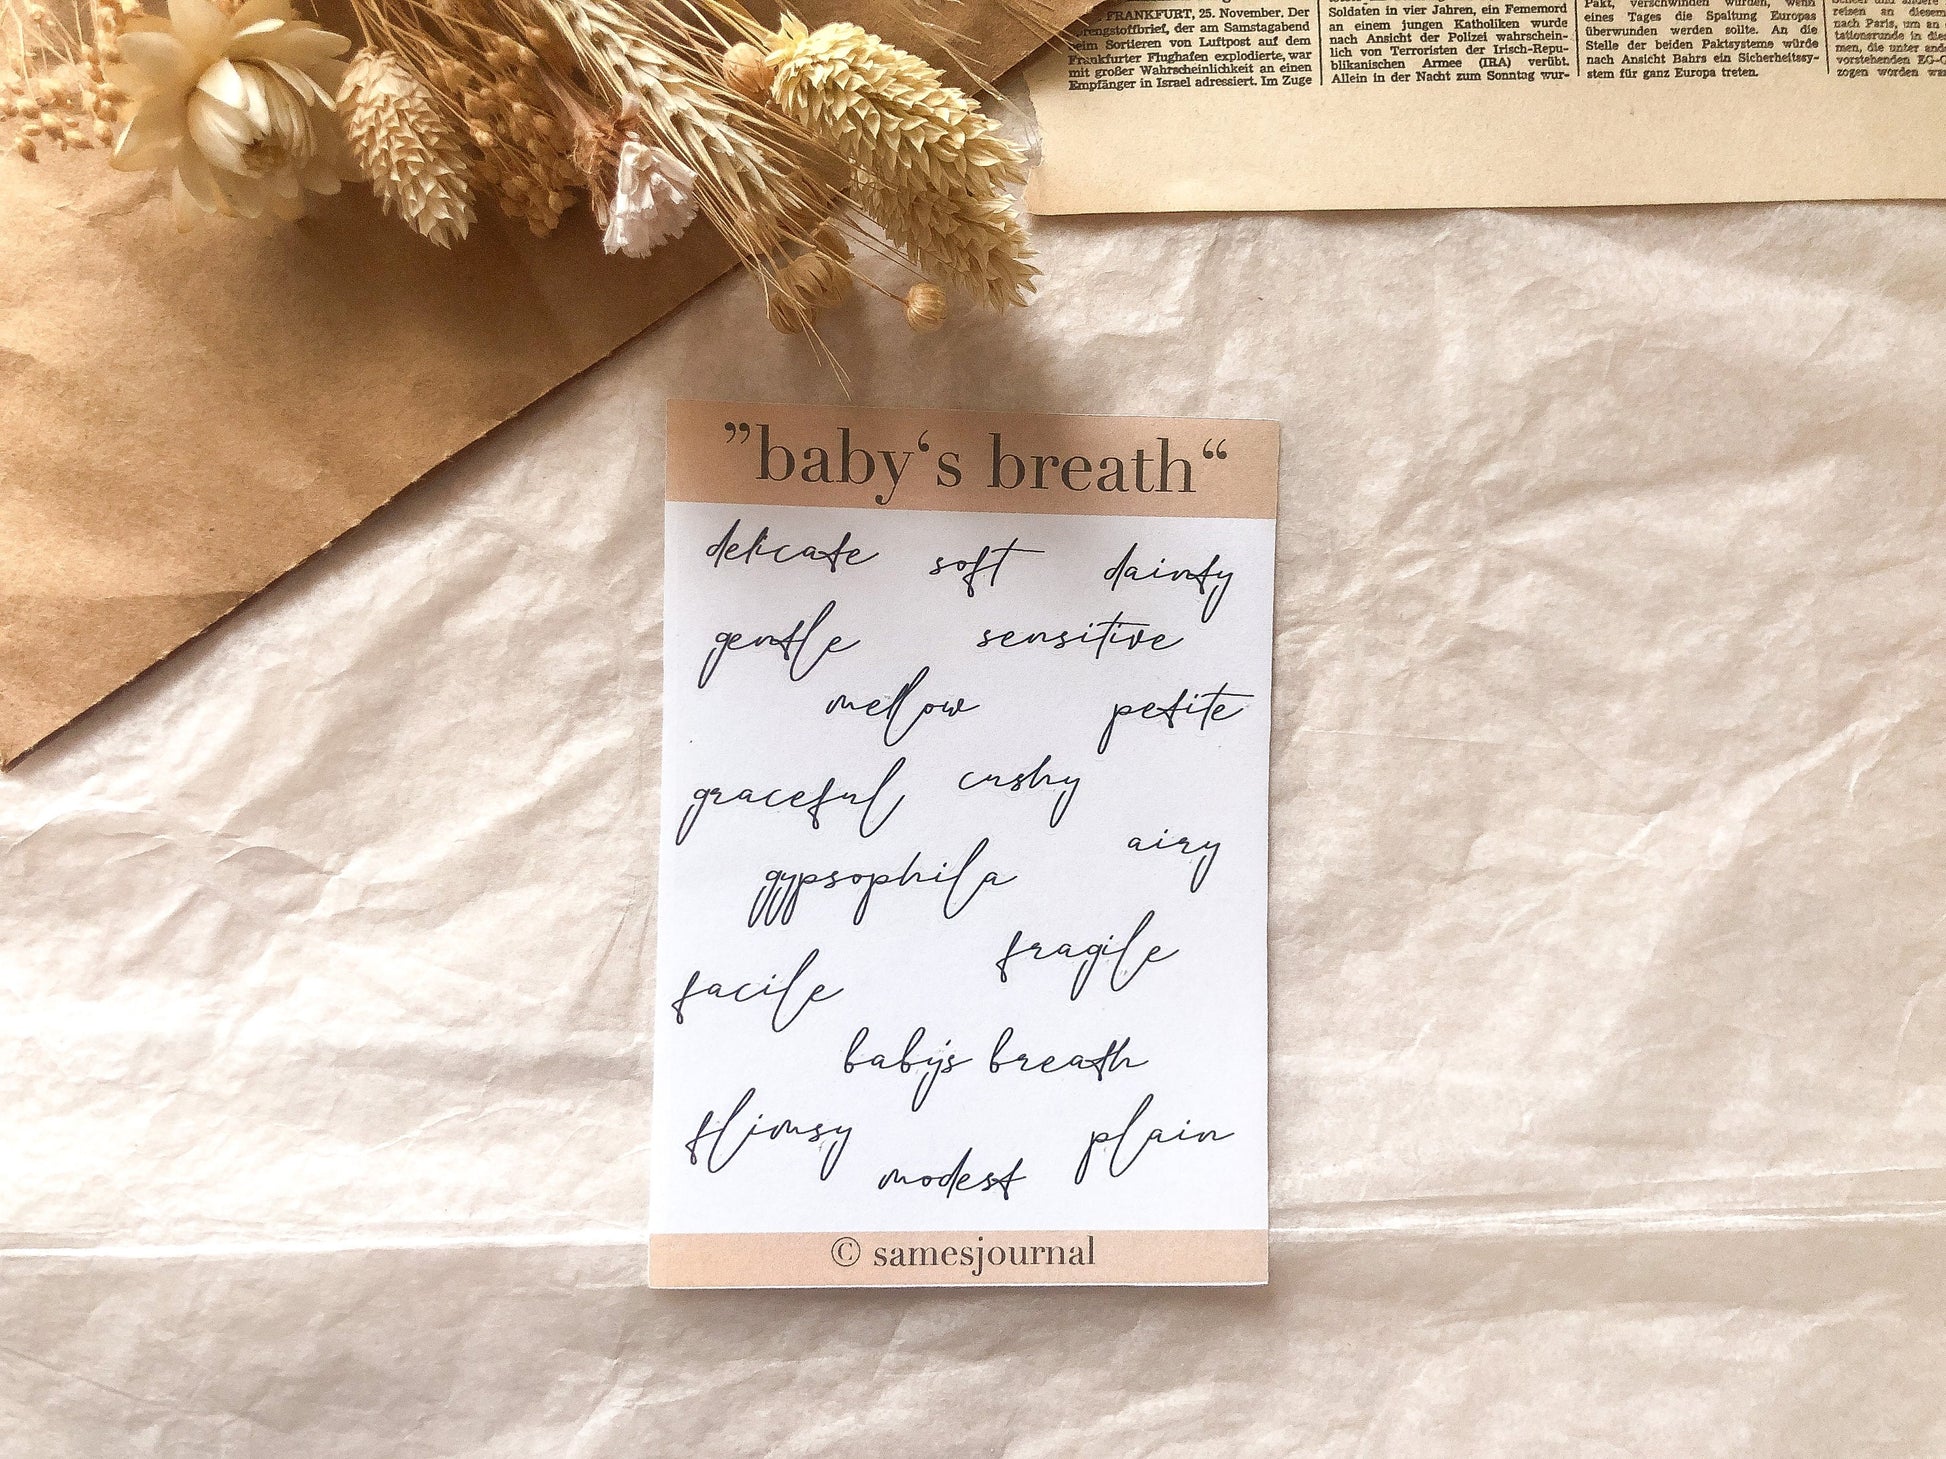 FRANKFURT, 25. November. Der
rengstoffbrief, der am Samstagabend
eim Sortieren von Luftpost auf dem
Frankfurter Flughafen explodierte, war
mit großer Wahrscheinlichkeit an einen
Empfänger in Israel adressiert. Im Zuge
Soldaten in vier Jahren, ein Fememord
an einem jungen Katholiken wurde
nach Ansicht der Polizei wahrschein-
lich von Terroristen der Irisch-Repu-
blikanischen Armee (IRA) verübt.
Allein in der Nacht zum Sonntag wur-
Pakt, verschwinden würden, wenn
eines Tages die Spaltung Europas
überwunden werden sollte. An die
Stelle der beiden Paktsysteme würde
nach Ansicht Bahrs ein Sicherheitssy-
stem für ganz Europa treten.
reisen an diesem
nach Paris, um an
tationsrunde in dies
men, die unter ande
vorstehenden EG-G
zogen worden wa
”baby‘s breath“
delicate soft dainty
gentle sensitive
mellow petite
graceful cushy
airy
gypsophila
fragile
facile
baby's breath
flimsy plain
modest
© samesjournal